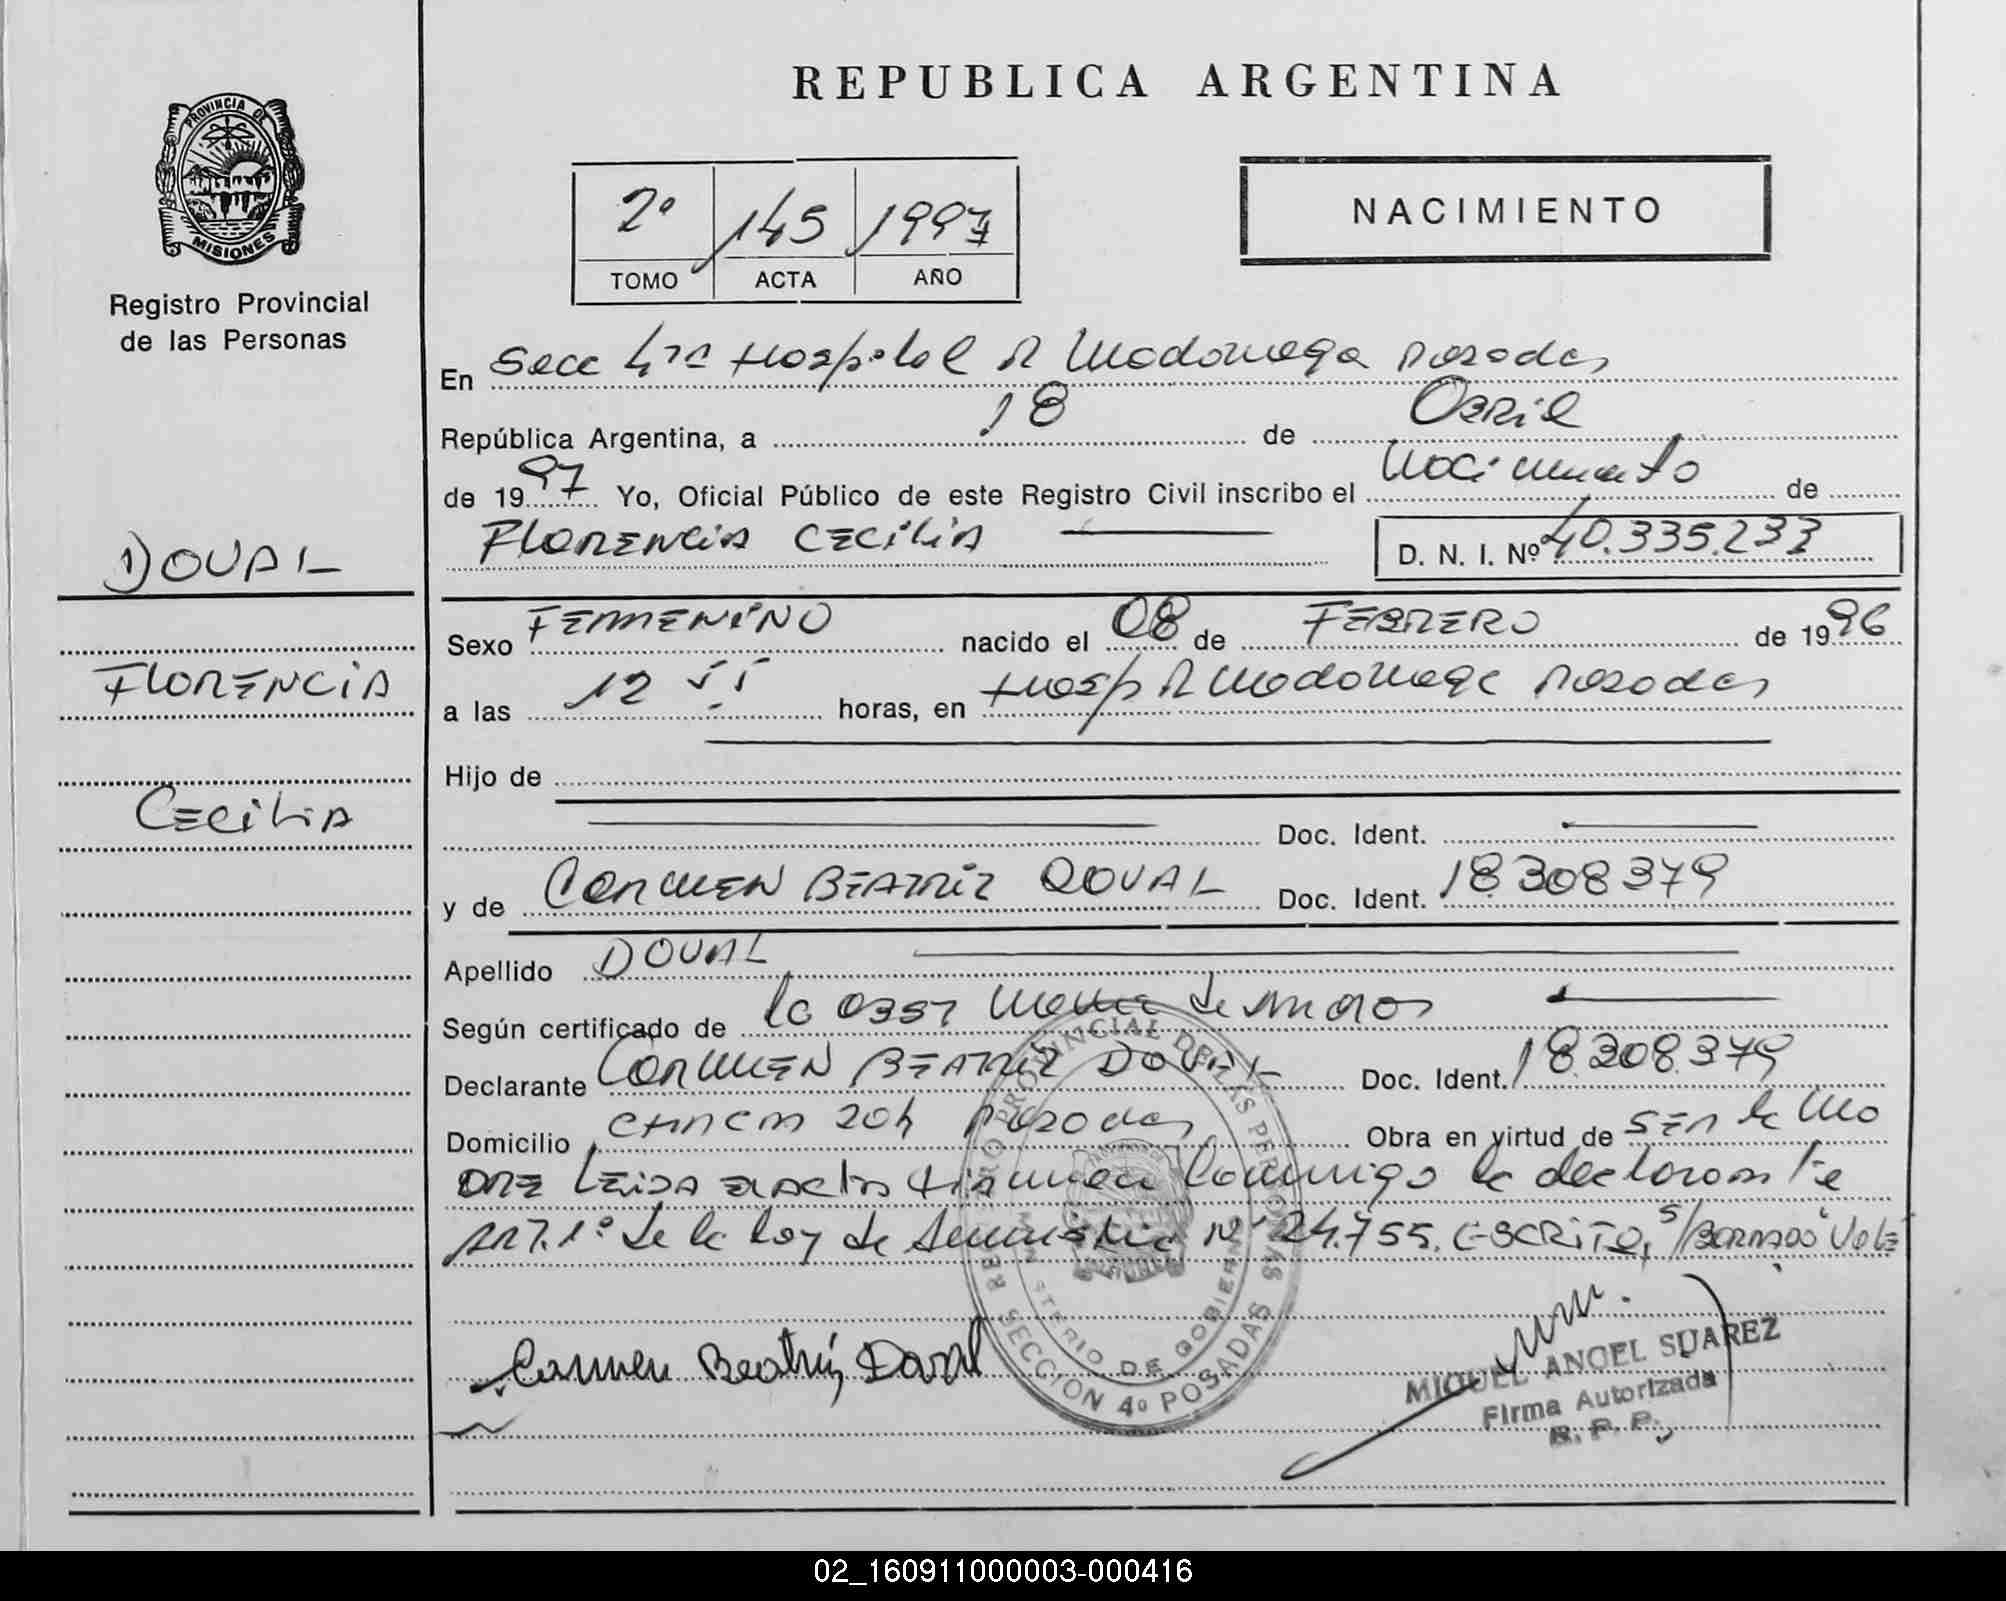 REPUBLICA ARGENTINA
PROVINCIA DE
MISIONES
Registro Provincial
de las Personas
2º 145 1997
TOMO ACTA AÑO
NACIMIENTO
En Secc 4ra Hospital R Madariaga Posadas
República Argentina, a 18 de Abril
de 1997 Yo, Oficial Público de este Registro Civil inscribo el Nacimiento de
FLORENCIA CECILIA D. N. I. Nº 40.335.233
DOVAL
FLORENCIA
CECILIA
Sexo FEMENINO nacido el 08 de FEBRERO de 1996
a las 12 55 horas, en Hosp R Madariaga Posadas
Hijo de
Doc. Ident.
y de CARMEN BEATRIZ DOVAL Doc. Ident. 18308379
Apellido DOVAL
Según certificado de la Obst
Declarante CARMEN BEATRIZ DOVAL Doc. Ident. 18.308.379
Domicilio CHACRA 204 Posadas Obra en virtud de SER la MA
DRE firman Conmigo la declarante
ART. 1º de la Ley de Amnistia Nº 24.755. ESCRITO, S/BORRADO Vale
Carmen Beatriz Doval
REGISTRO PROVINCIAL DE LAS PERSONAS
MINISTERIO DE GOBIERNO
SECCION 4º POSADAS
MIGUEL ANGEL SUAREZ
Firma Autorizada
R. P. P.
02_160911000003-000416